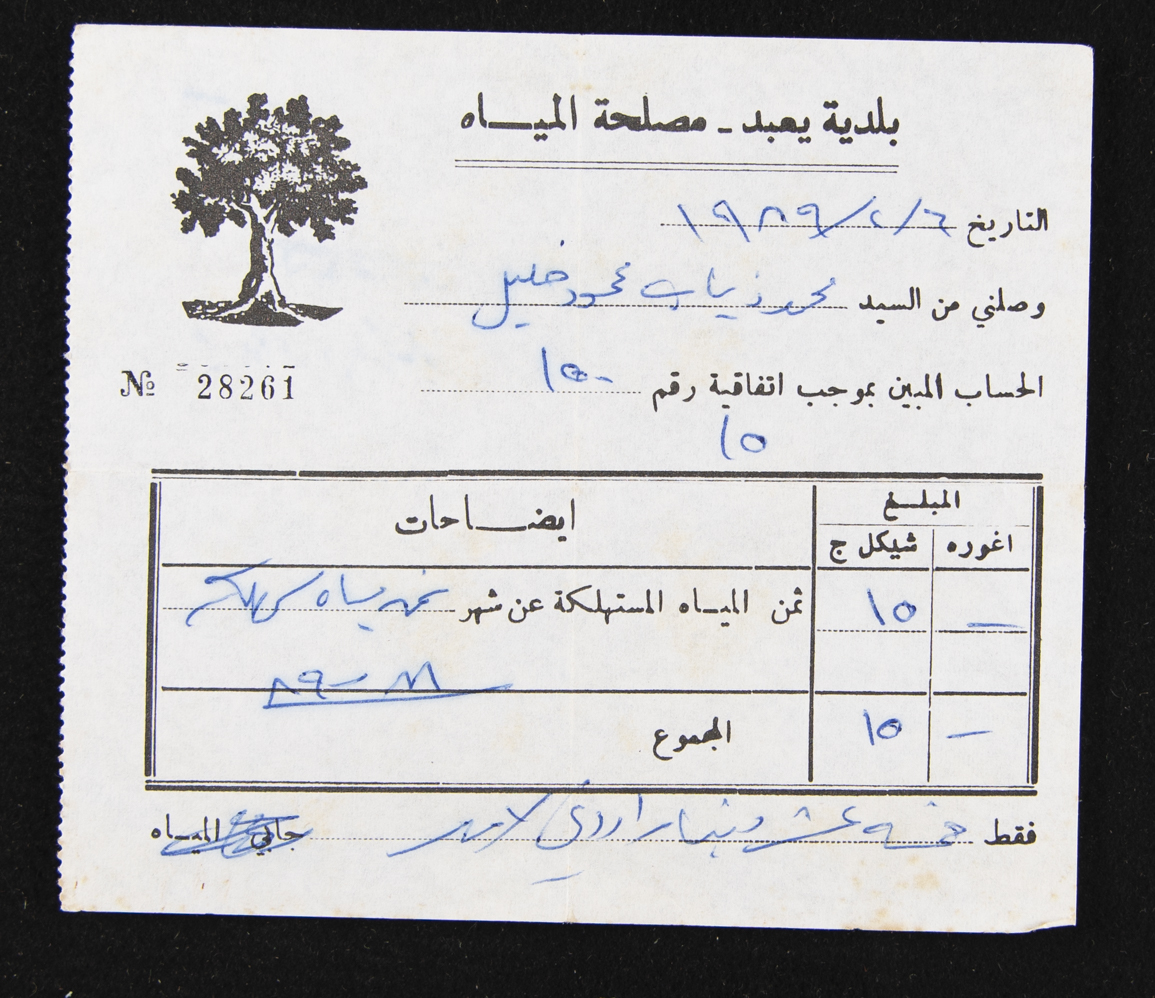 بلدية يعبد - مصلحة الميـاه
التاريخ ٦/٢/١٩٨٩
وصلني من السيد محمد ذياب محمود خليل
الحساب المبين بموجب اتفاقية رقم ١٥٠
№ 28261
١٥
المبلغ ايضـاحات
اغوره شيكل ج
— ١٥ ثمن الميـاه المستهلكة عن شهر ثمن مياه
— ١٥ المجموع
فقط خمسة عشر دينار اردني لا غير جابي الميـاه